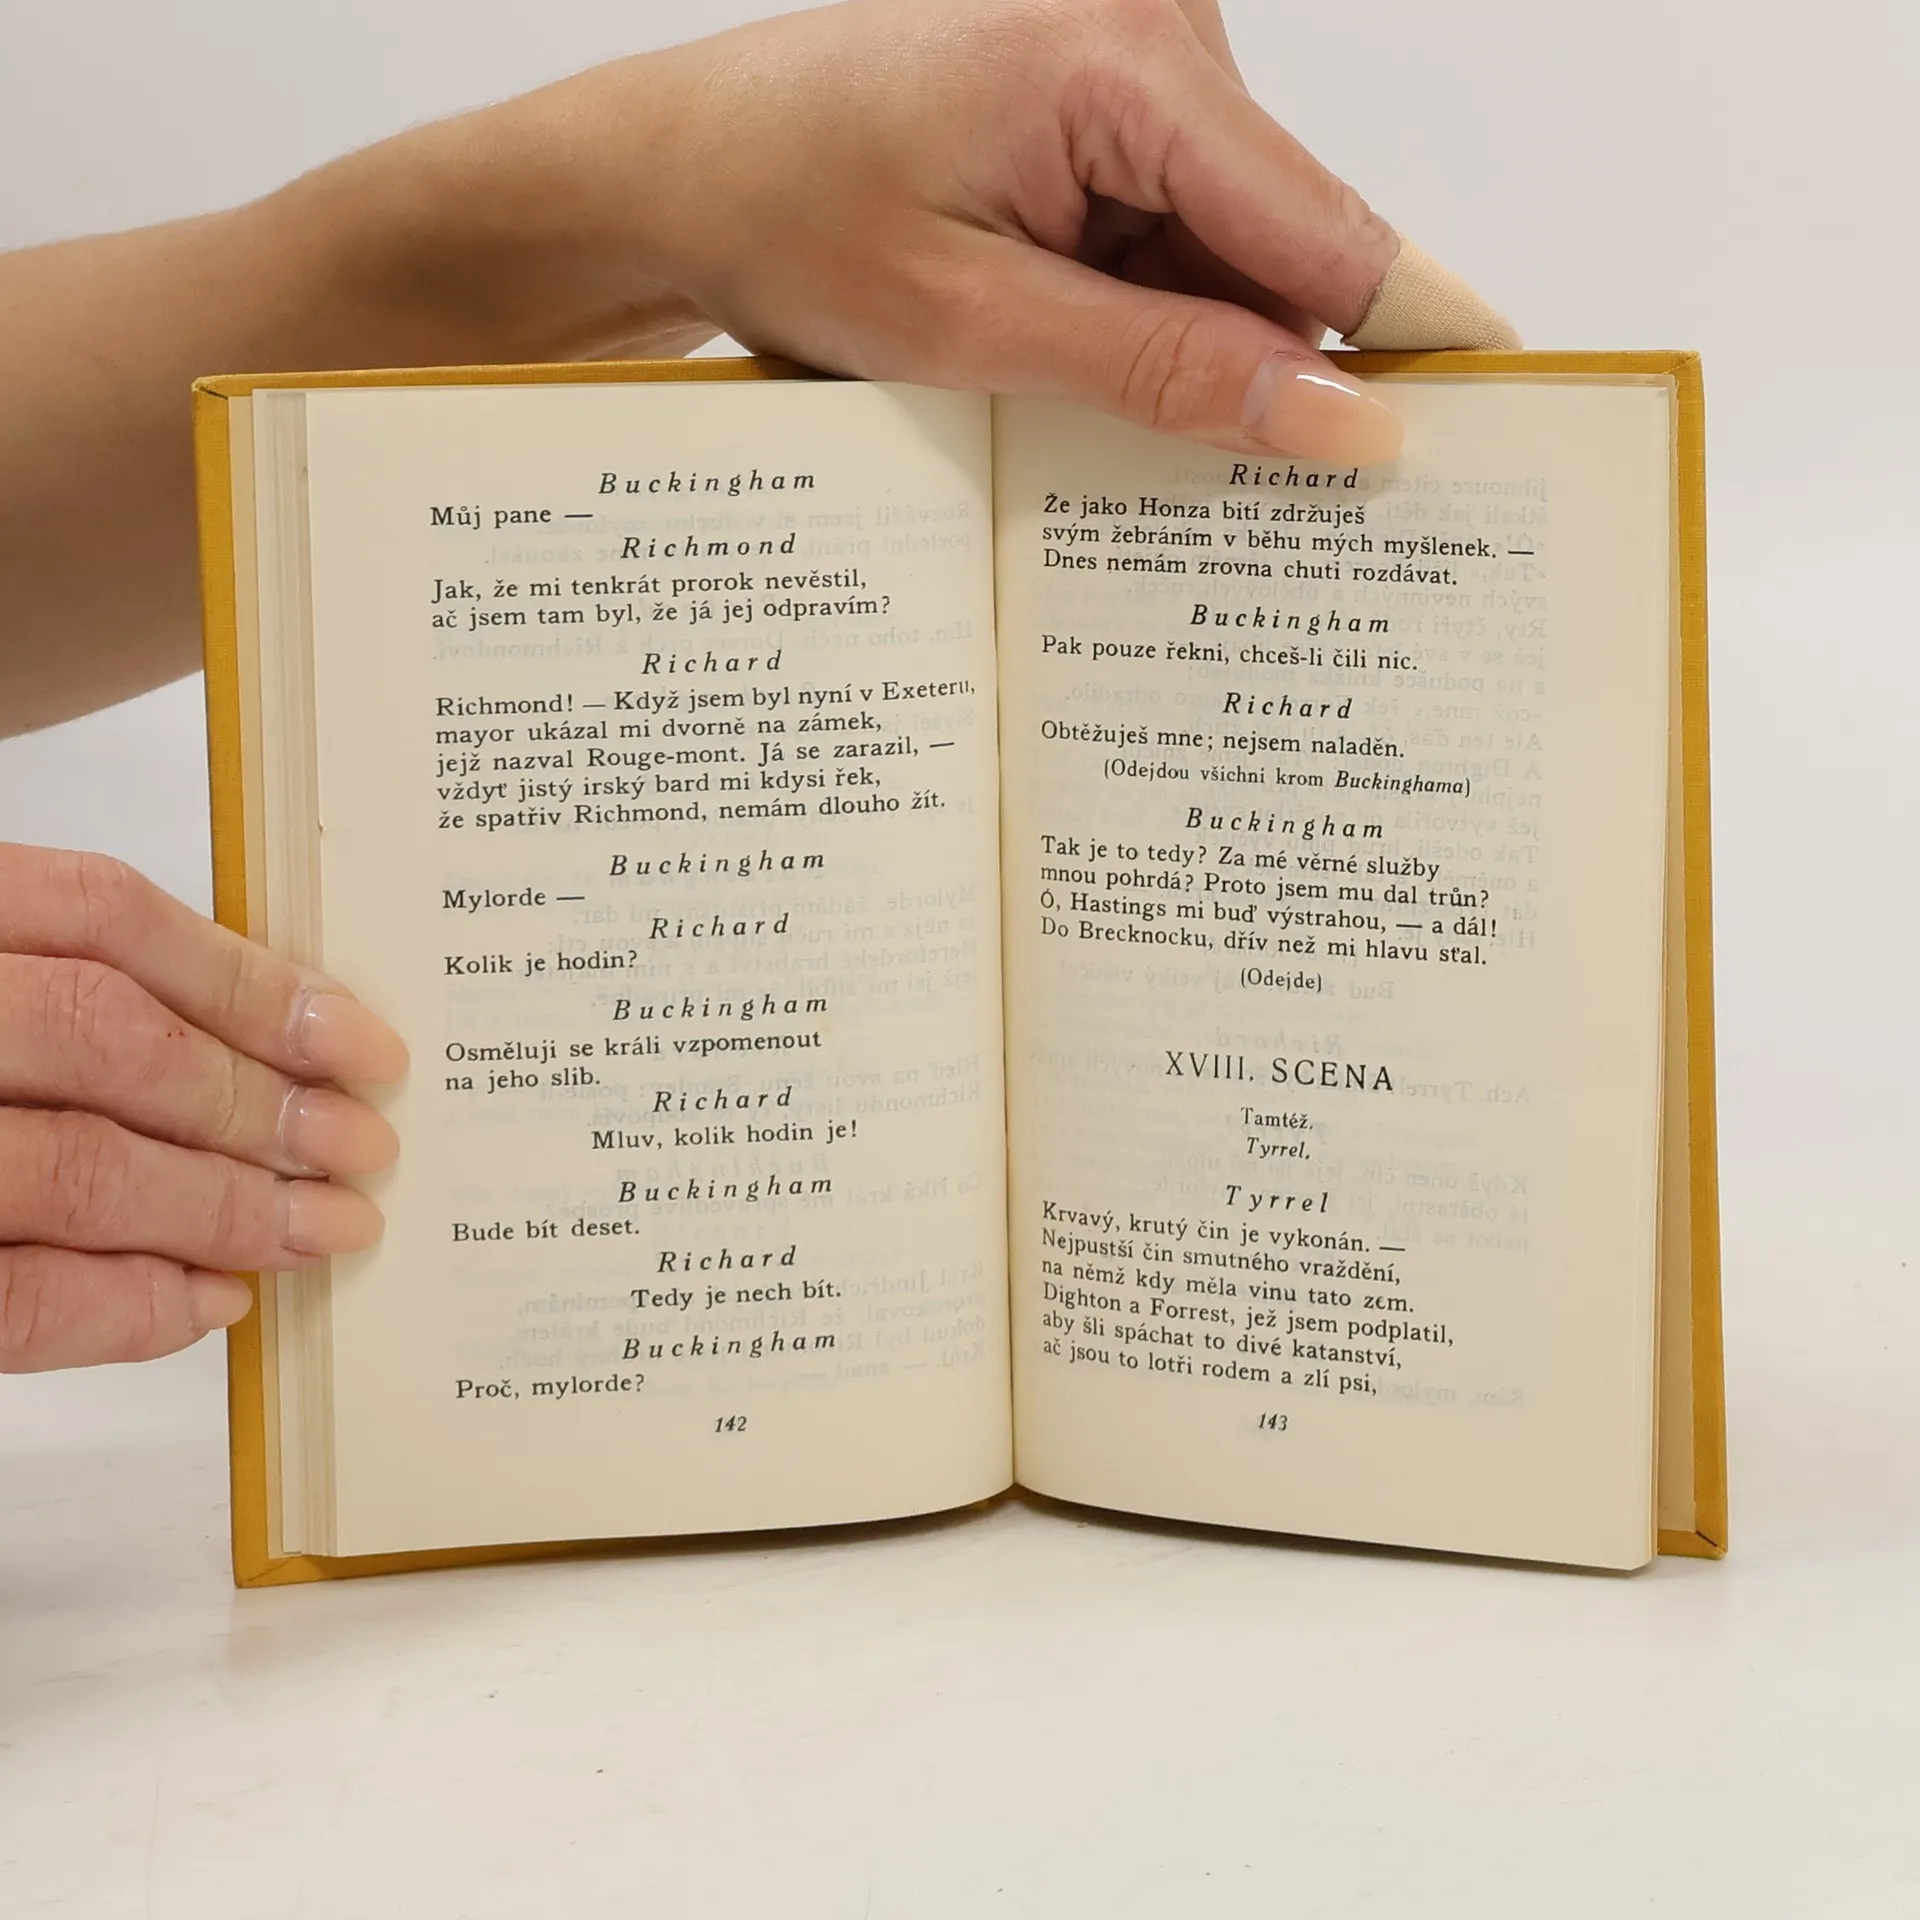 Buckingham
Můj pane —
Richmond
Jak, že mi tenkrát prorok nevěstil,
ač jsem tam byl, že já jej odpravím?
Richard
Richmond! — Když jsem byl nyní v Exeteru,
mayor ukázal mi dvorně na zámek,
jejž nazval Rouge-mont. Já se zarazil, —
vždyť jistý irský bard mi kdysi řek,
že spatřiv Richmond, nemám dlouho žít.
Buckingham
Mylorde —
Richard
Kolik je hodin?
Buckingham
Osměluji se králi vzpomenout
na jeho slib.
Richard
Mluv, kolik hodin je!
Buckingham
Bude bít deset.
Richard
Tedy je nech bít.
Buckingham
Proč, mylorde?
142
Richard
Že jako Honza bití zdržuješ
svým žebráním v běhu mých myšlenek. —
Dnes nemám zrovna chuti rozdávat.
Buckingham
Pak pouze řekni, chceš-li čili nic.
Richard
Obtěžuješ mne; nejsem naladěn.
(Odejdou všichni krom Buckinghama)
Buckingham
Tak je to tedy? Za mé věrné služby
mnou pohrdá? Proto jsem mu dal trůn?
Ó, Hastings mi buď výstrahou, — a dál!
Do Brecknocku, dřív než mi hlavu sťal.
(Odejde)
XVIII. SCENA
Tamtéž.
Tyrrel.
Tyrrel
Krvavý, krutý čin je vykonán. —
Nejpustší čin smutného vraždění,
na němž kdy měla vinu tato zem.
Dighton a Forrest, jež jsem podplatil,
aby šli spáchat to divé katanství,
ač jsou to lotři rodem a zlí psi,
143